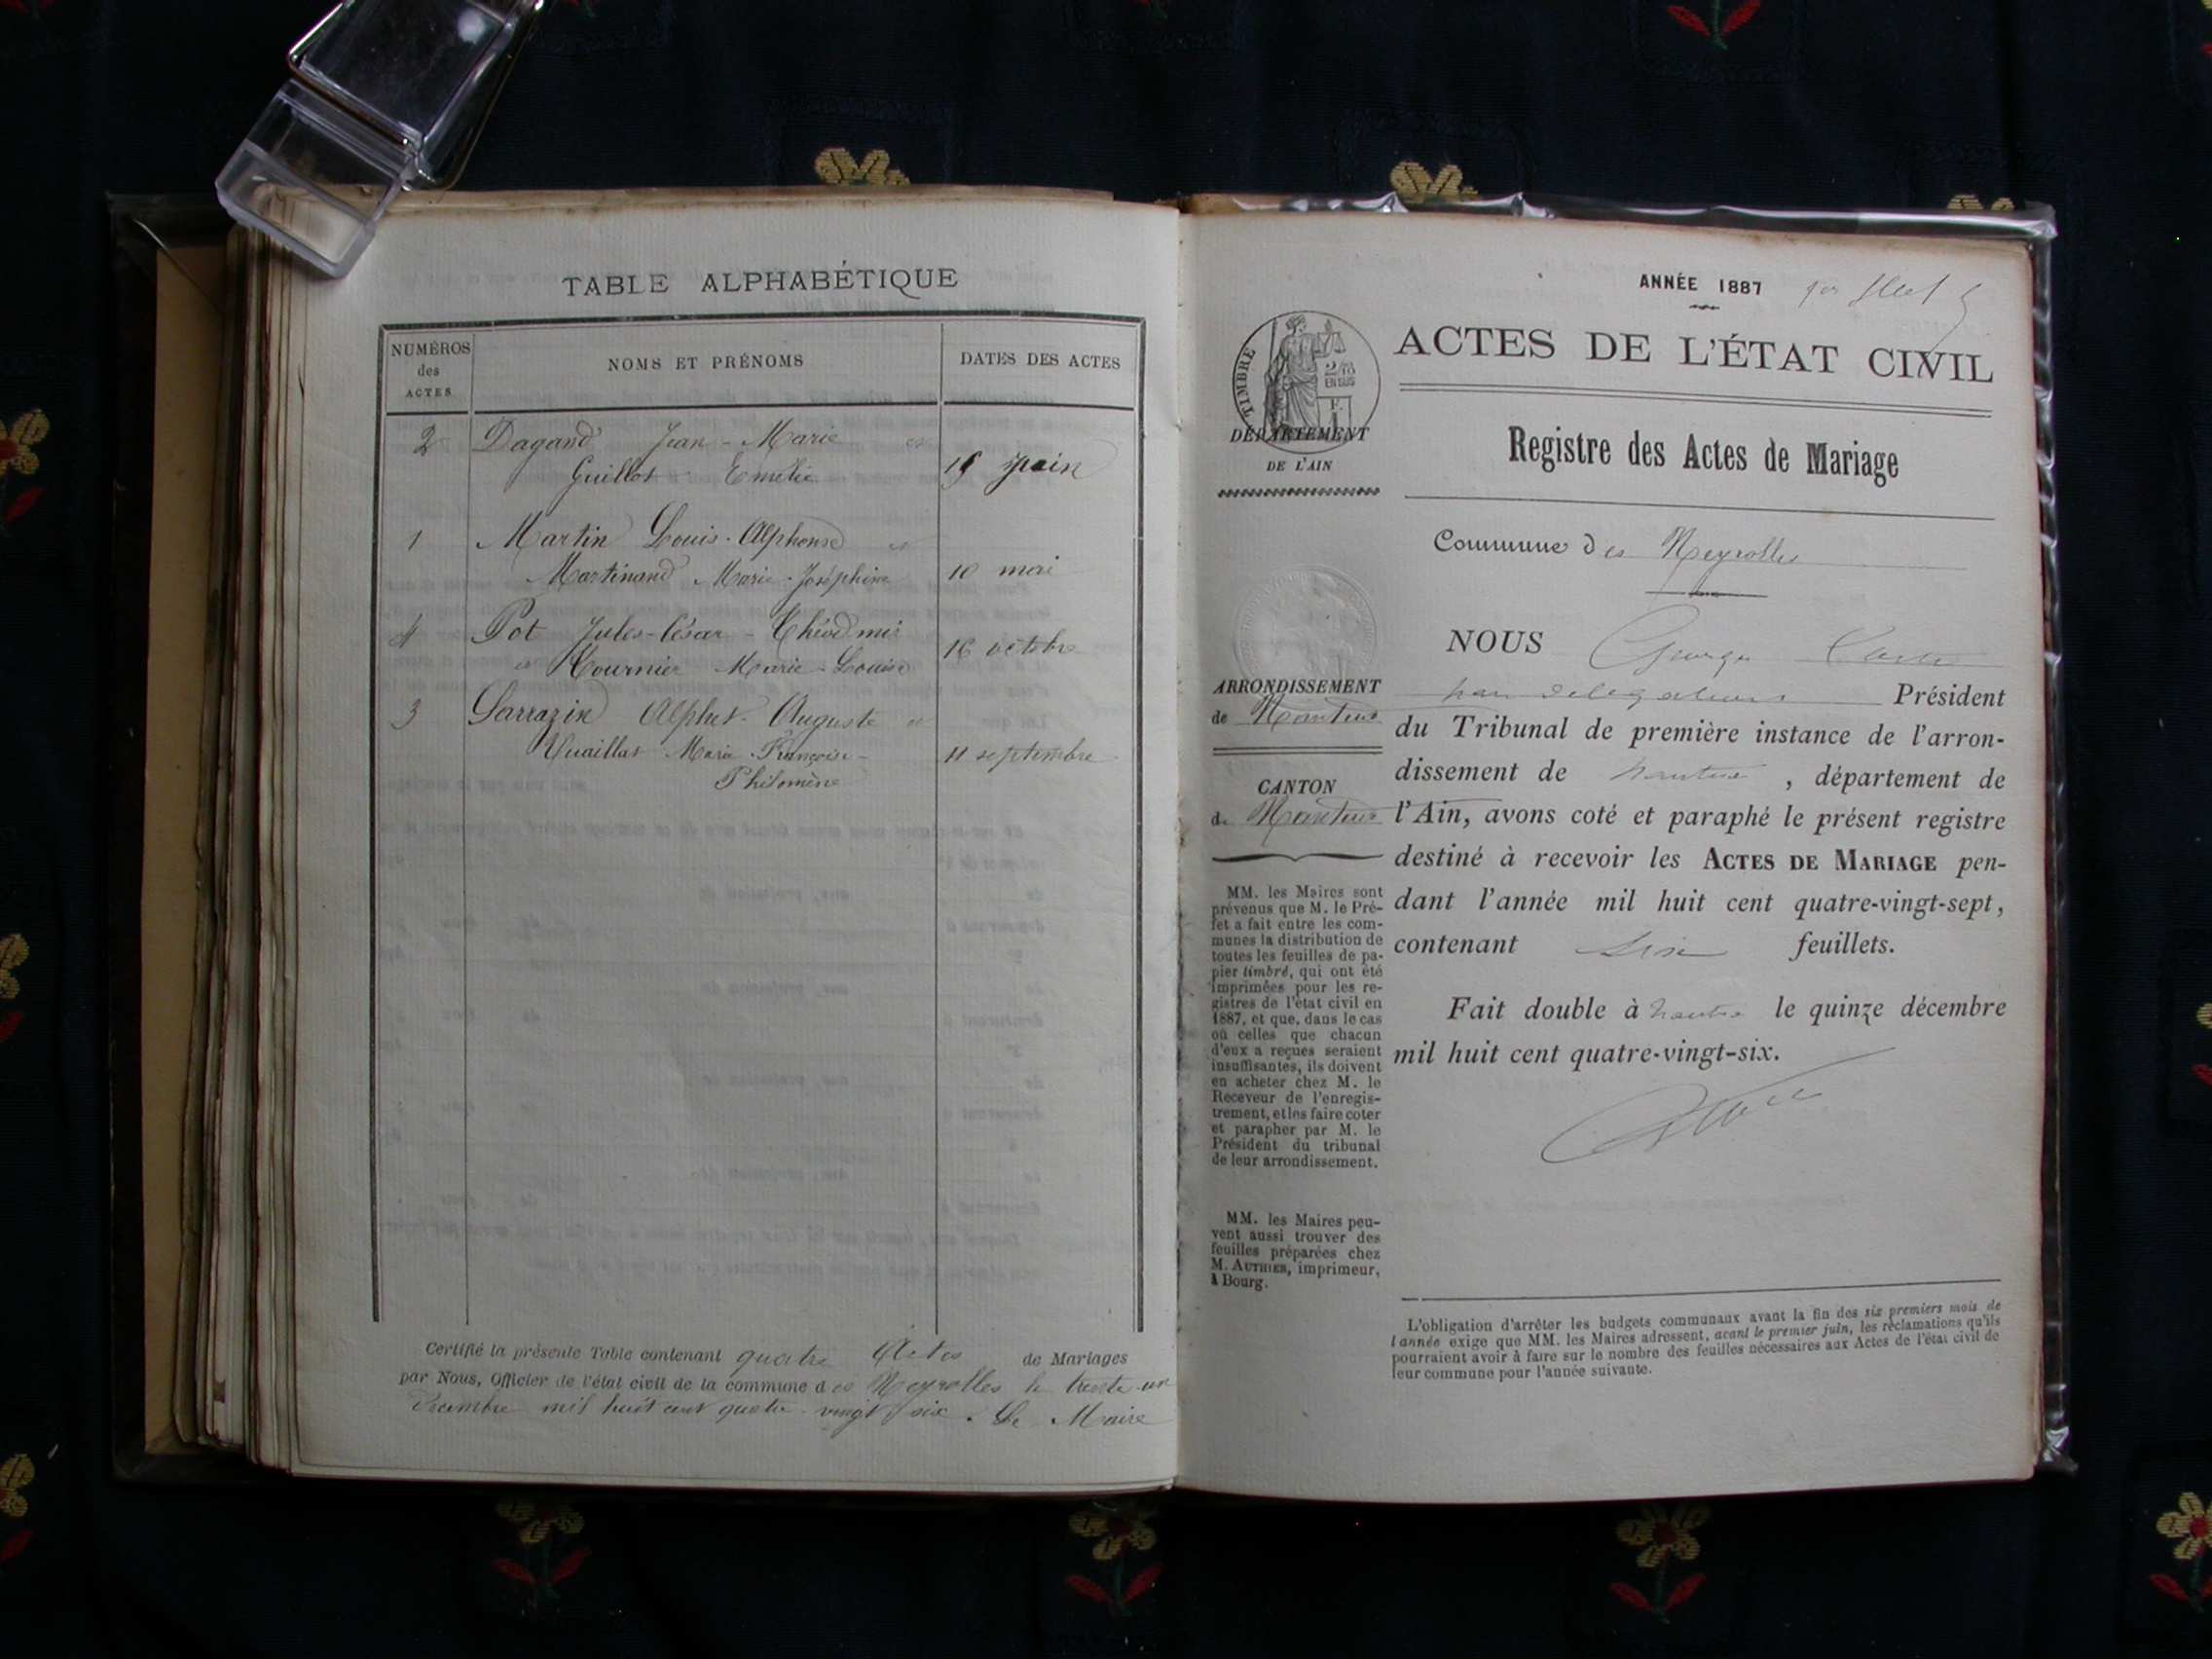 TABLE ALPHABÉTIQUE
NUMÉROS des ACTES
NOMS ET PRÉNOMS
DATES DES ACTES
2 Dagand Jean-Marie et
Guillot Emélie 15 juin
1 Martin Louis-Alphonse et
Martinand Marie-Joséphine 10 mai
4 Pot Jules-César-Théodmir
et Tournier Marie-Louise 16 octobre
3 Sarrazin Alphet-Auguste et
Vuaillat Marie-Françoise- 11 septembre
Philomène
Certifié la présente Table contenant quatre Actes de Mariages
par Nous, Officier de l'état civil de la commune des Neyrolles le trente-un
Décembre mil huit cent quatre-vingt six. Le Maire
ANNÉE 1887
TIMBRE
2/10
EN SUS
DÉPARTEMENT
DE L'AIN
ARRONDISSEMENT
de Nantua
CANTON
de Nantua
MM. les Maires sont
prévenus que M. le Pré-
fet a fait entre les com-
munes la distribution de
toutes les feuilles de pa-
pier timbré, qui ont été
imprimées pour les re-
gistres de l'état civil en
1887, et que, dans le cas
où celles que chacun
d'eux a reçues seraient
insuffisantes, ils doivent
en acheter chez M. le
Receveur de l'enregis-
trement, et les faire coter
et parapher par M. le
Président du tribunal
de leur arrondissement.
MM. les Maires peu-
vent aussi trouver des
feuilles préparées chez
M. AUTHIER, imprimeur,
à Bourg.
ACTES DE L'ÉTAT CIVIL
Registre des Actes de Mariage
Commune des Neyrolles
NOUS Georges
par délégation Président
du Tribunal de première instance de l'arron-
dissement de Nantua, département de
l'Ain, avons coté et paraphé le présent registre
destiné à recevoir les ACTES DE MARIAGE pen-
dant l'année mil huit cent quatre-vingt-sept,
contenant six feuillets.
Fait double à Nantua le quinze décembre
mil huit cent quatre-vingt-six.
L'obligation d'arrêter les budgets communaux avant la fin des six premiers mois de
l'année exige que MM. les Maires adressent, avant le premier juin, les réclamations qu'ils
pourraient avoir à faire sur le nombre des feuilles nécessaires aux Actes de l'état civil de
leur commune pour l'année suivante.